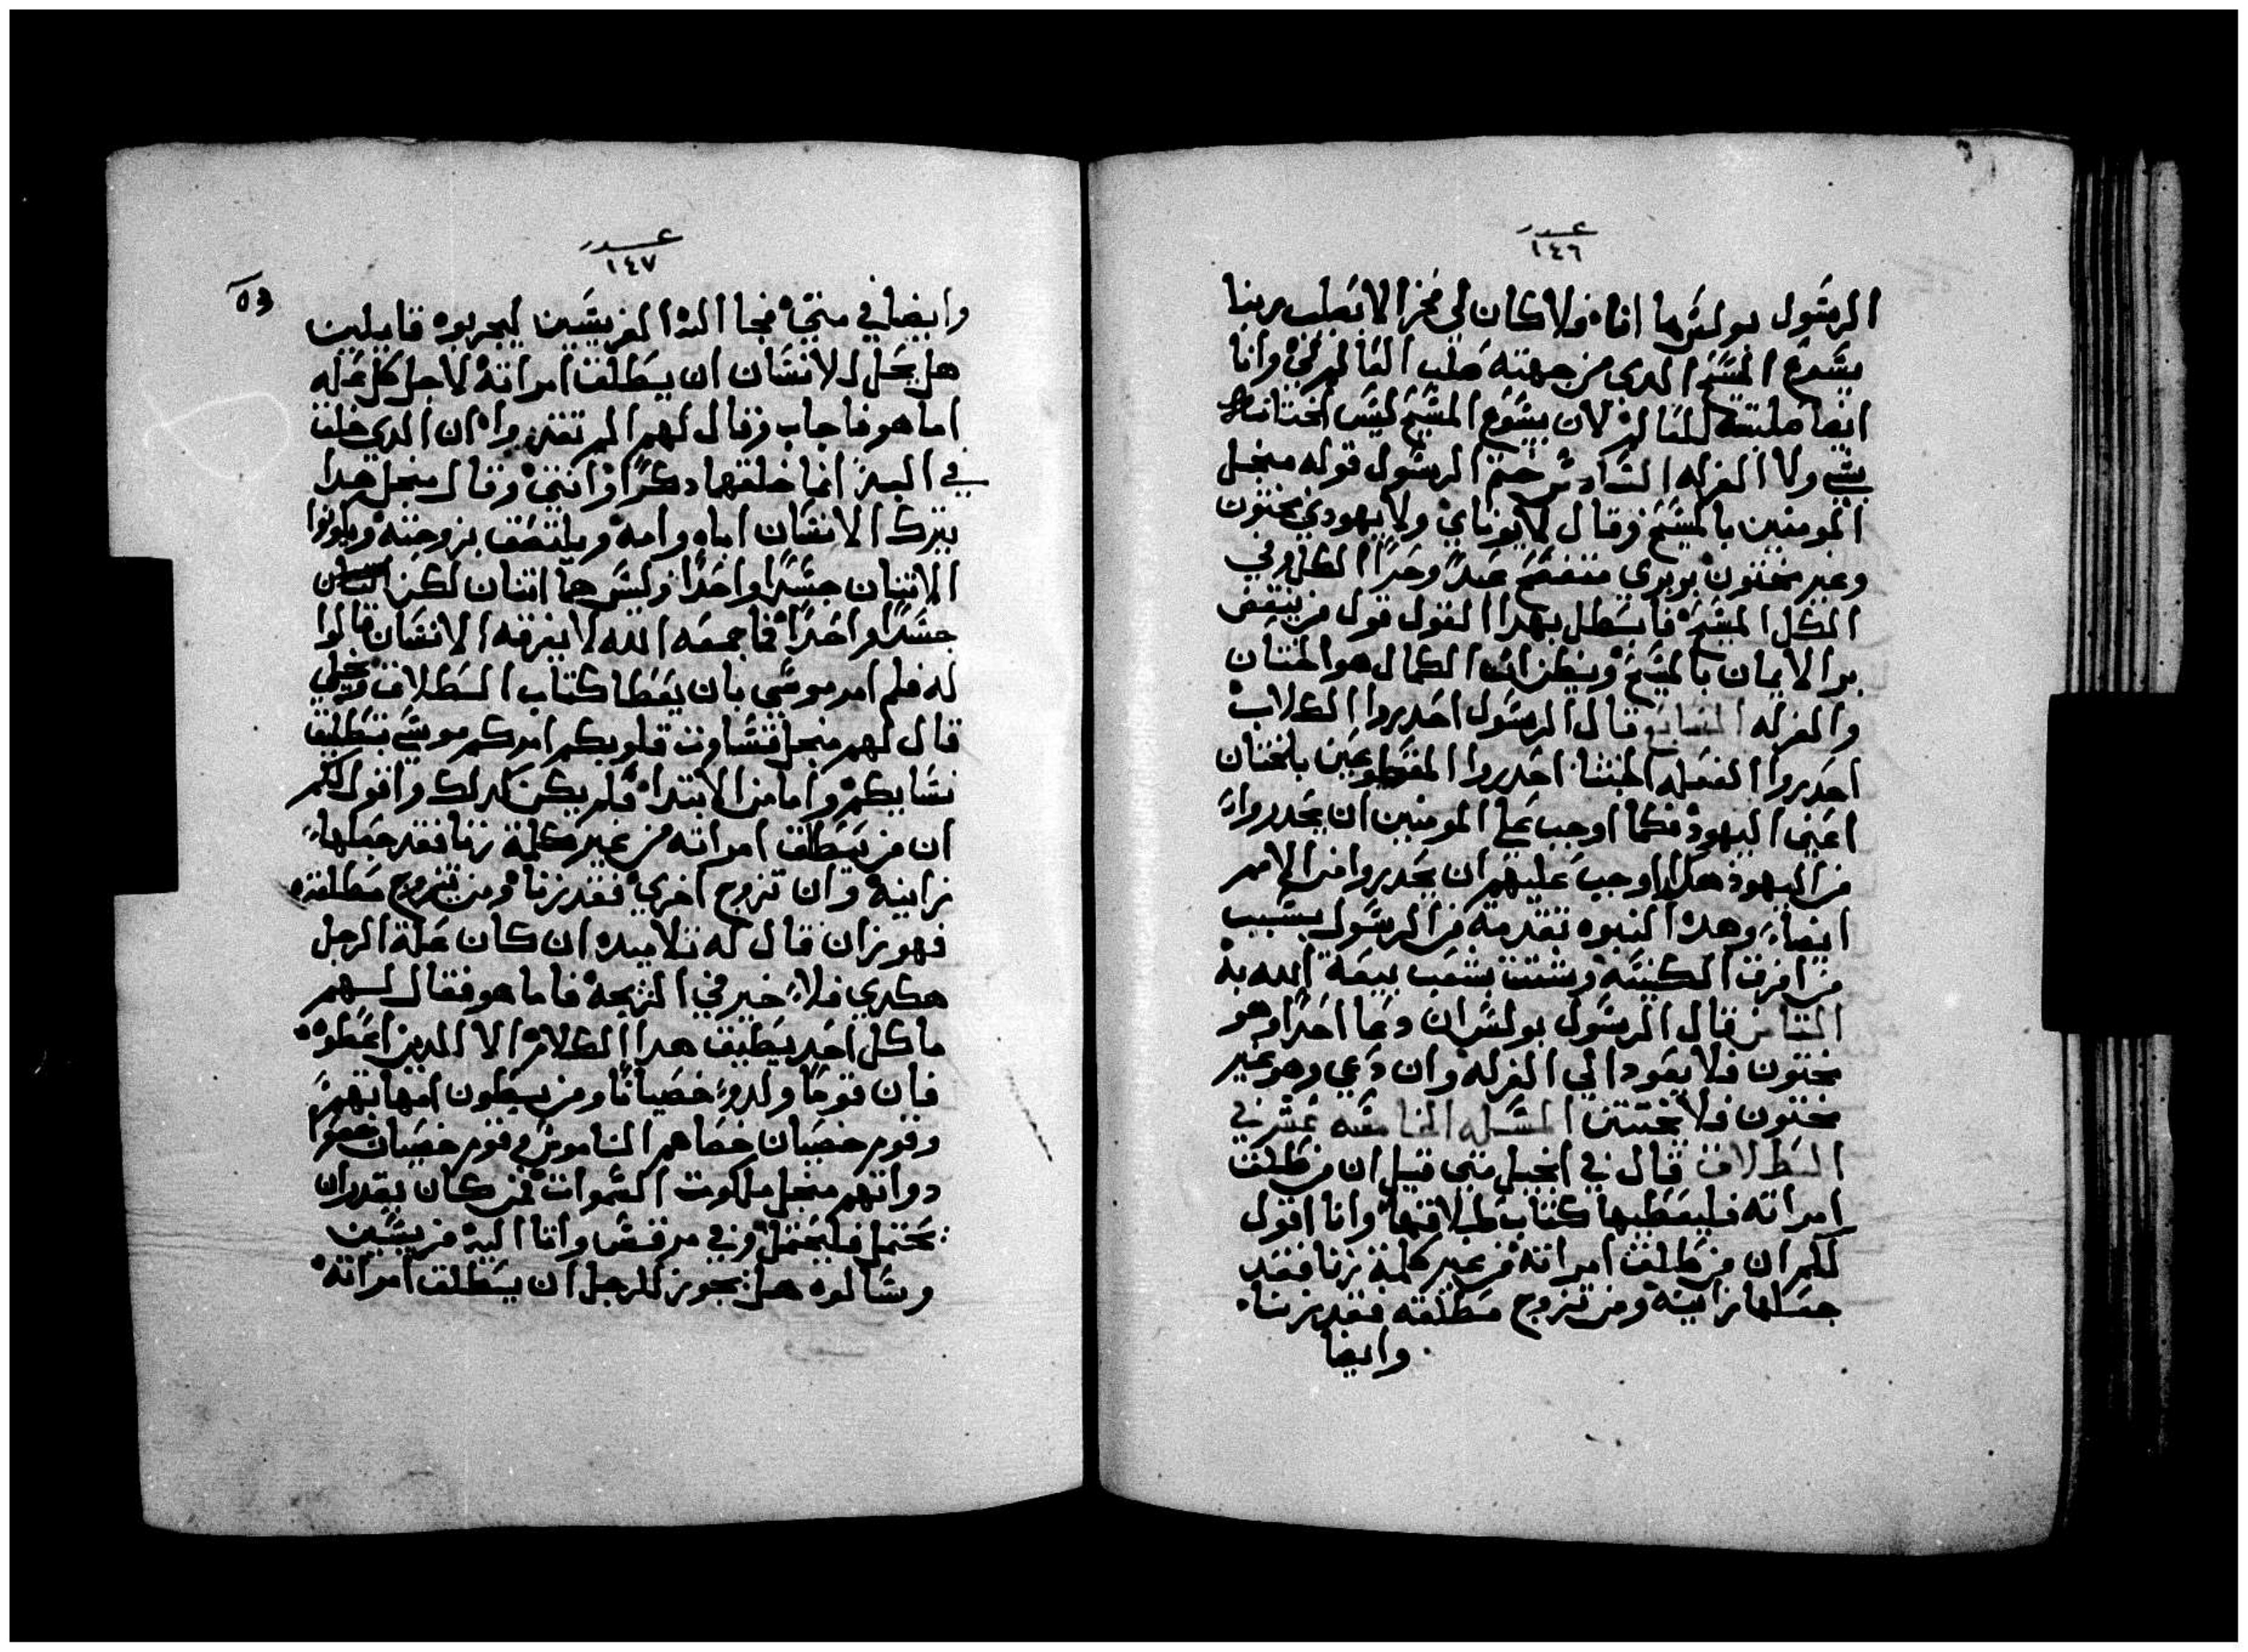 عدد
١٤٦
الرسول بولس اما انا فلا كان لي فخر الا بصليب ربنا
يسوع المسيح الدي من جهته صلب العالم لي وانا
ايضا صلبت للعالم لان يسوع المسيح ليس الختانه
بشي ولا الغرله السادس ختم الرسول قوله منجل
المومنين بالمسيح وقال لا يوناني ولا يهودي مختون
وغير مختون بربري عبد وحر الكل وفي
الكل المسيح فابطل بهدا القول قول من ينقض
بر الايمان بالمسيح ويظن ان الكمال هو الختان
والغرله السابع قال الرسول احدروا الكلاب
احدروا الفعله الخبثا احدروا المقطوعين بالختان
اعني اليهود فكما اوجب على المومنين ان يحدروا
من اليهود هكدا اوجب عليهم ان يحدروا من الامم
ايضا وهده النبوه تقدمة من الرسول بسبب
من افرق الكنيسه وشتت شعب بيعة الله به
الثامن قال الرسول بولس ان دعا احدا وهو
مختون فلا يعود الي الغرله وان دعي وهو غير
مختون فلا يختتن المسله الخامسه عشر في
الطلاق قال في انجيل متي قيل ان من طلق
امراته فليعطيها كتاب طلاقها وانا اقول
لكم ان من طلق امراته من غير كلمة زنا فقد
جعلها زانيه ومن تزوج مطلقته فقد زنا
وايضا
عدد
١٤٧
٥٣
وايضا في متي فجا اليه الفريسين ليجربوه قايلين
هل يحل للانسان ان يطلق امراته لاجل كل عله
اما هو فاجاب وقال لهم الم تقروا ان الدي خلق
في البدء انما خلقها دكرا وانتي وقال منجل هدا
يترك الانسان اباه وامه ويلتصق بزوجته ويكونوا
الاتنان جسدا واحدا وليس هما اتنان لكن
جسدا واحدا فما جمعه الله لا يفرقه الانسان قالوا
له فلم امر موسي بان يعطا كتاب الطلاق وتخلي
قال لهم منجل قساوت قلوبكم امركم موسي بتطليق
نسايكم واما من الابتدا فلم يكن كدلك واقول لكم
ان من يطلق امراته من غير كلمة زنا فقد جعلها
زانيه وان تزوج اخري فقد زنا ومن تزوج مطلقته
فهو زان قال له تلاميده ان كان علة الرجل
هكدي فلا خير في الزيجة فاما هو فقال لهم
ما كل احد يطيق هدا الكلام الا الدين اعطوه
فان قوما ولدو خصيانا ومن بطون امهاتهم
وقوم خصيان خصاهم الناموس وقوم خصيان خصوا
دواتهم منجل ملكوت السموات فمن كان يقدر ان
يحتمل فليحتمل وفي مرقس واتا اليه فريسين
وسالوه هل يجوز للرجل ان يطلق امراته